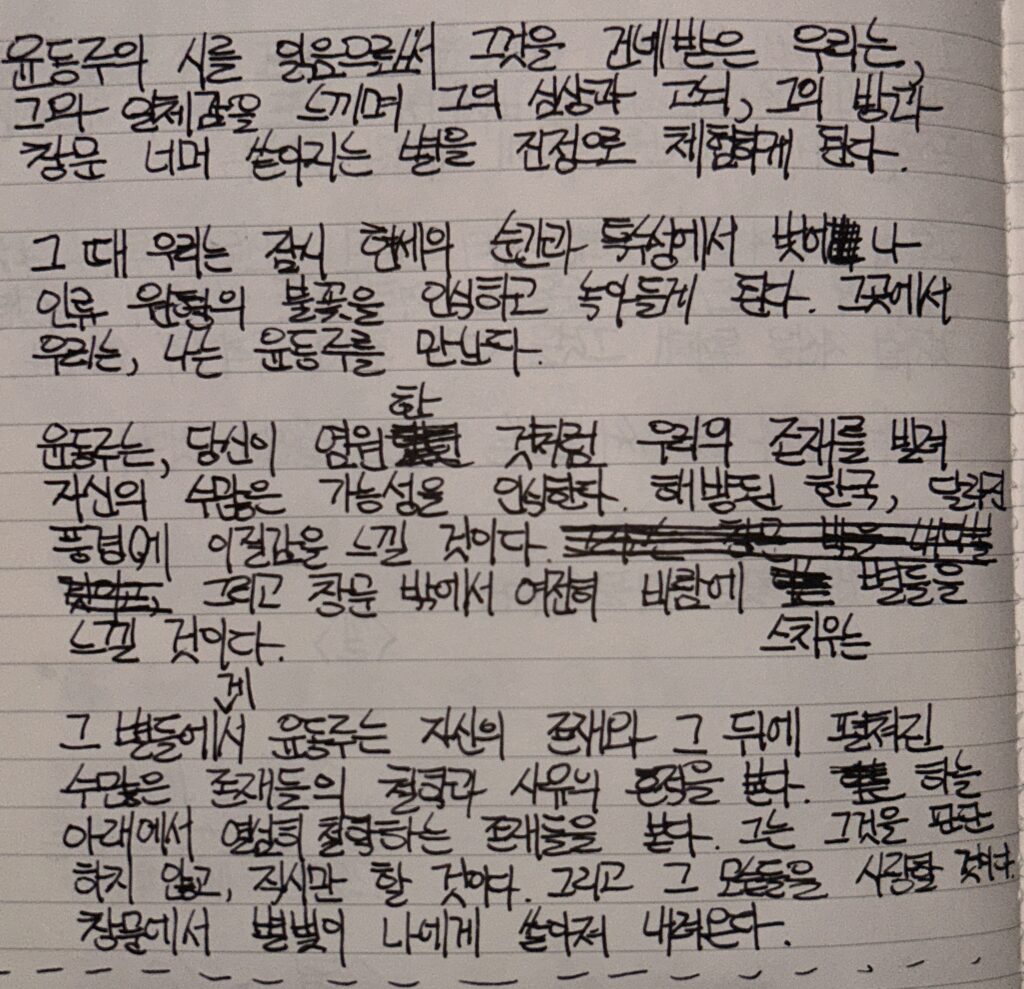 윤동주의 시를 읽음으로써 그것을 건네받은 우리는,
그와 일체감을 느끼며 그의 심상과 고뇌, 그의 방과
창문 너머 쏟아지는 별을 진정으로 체험하게 된다.
그 때 우리는 잠시 현세의 순간과 특수성에서 벗어나
인류 원형의 불꽃을 인식하고 녹아들게 된다. 그곳에서
우리는, 나는 윤동주를 만난다.
한
윤동주는, 당신이 염원 것처럼 우리의 존재를 빌려
자신의 수많은 가능성을 인식한다. 해방된 한국, 달라진
풍경에 이질감을 느낄 것이다.
그리고 창문 밖에서 여전히 바람에 별들을
느낄 것이다. 스치우는
게
그 별들에서 윤동주는 자신의 존재와 그 뒤에 펼쳐진
수많은 존재들의 철학과 사유의 흔적을 본다. 하늘
아래에서 열심히 철학하는 존재들을 본다. 그는 그것을 판단
하지 않고, 직시만 할 것이다. 그리고 그 모습들을 사랑할 것이다.
창문에서 별빛이 나에게 쏟아져 내려온다.